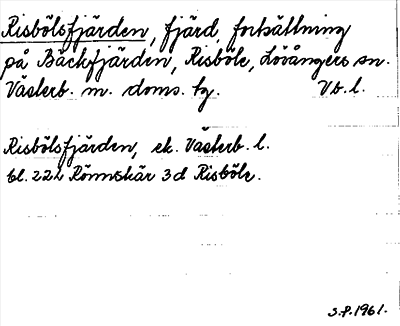 Risbölsfjärden, fjärd, fortsättning
på Bäckfjärden, Risböle, Lövångers sn.
Västerb. m. doms. tg. Vb. l.
Risbölsfjärden, ek. Västerb. l.
bl. 22L Rönnskär 3d Risböle.
S.P. 1961.